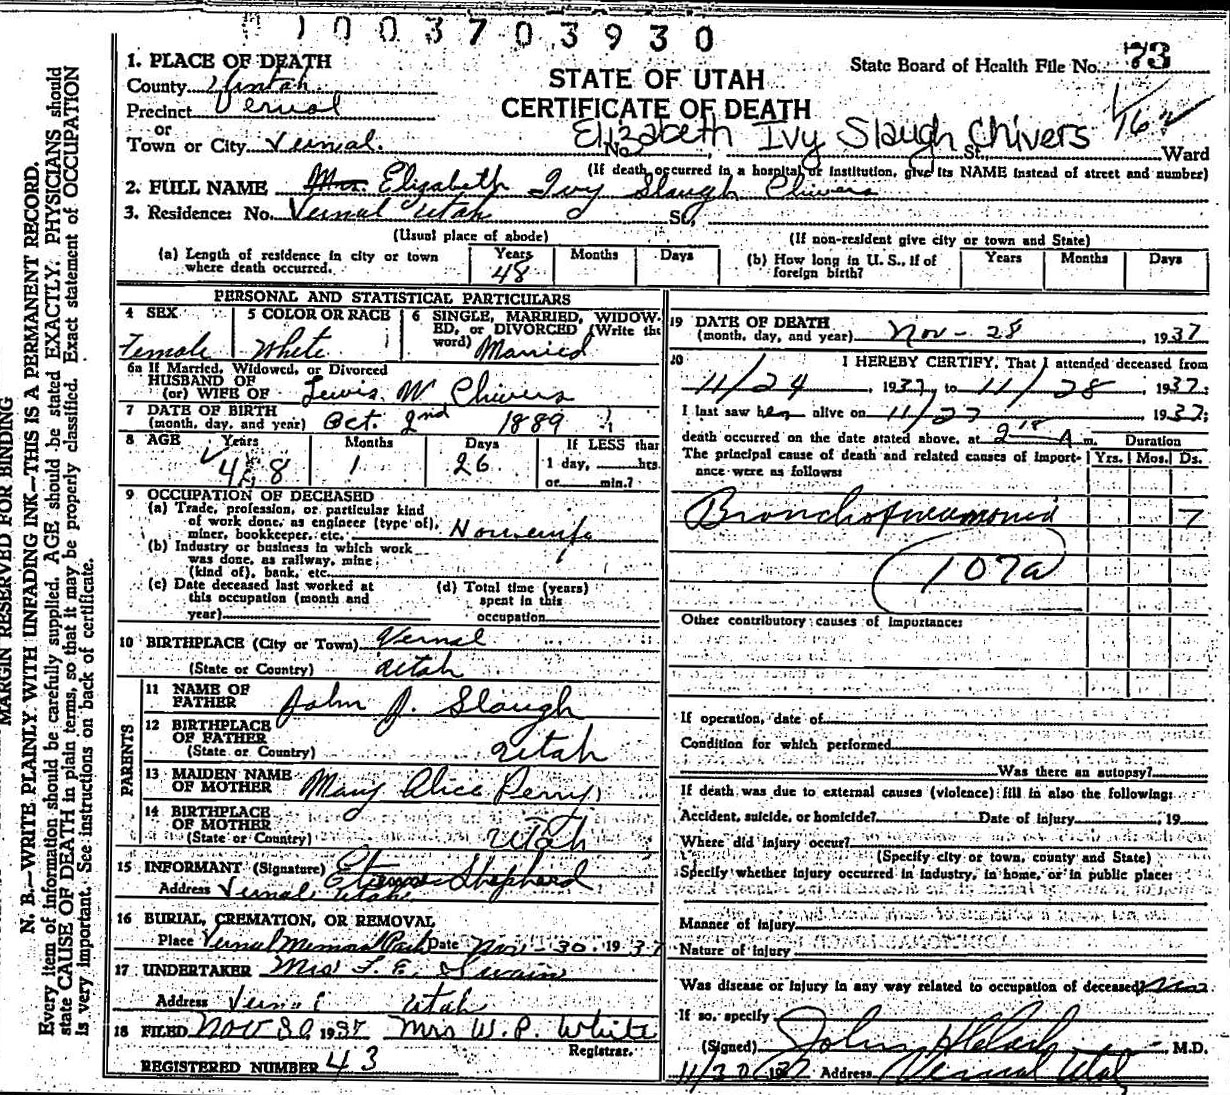 1003703930
1. PLACE OF DEATH
County Uintah
Precinct Vernal
or
Town or City Vernal.
STATE OF UTAH
CERTIFICATE OF DEATH
State Board of Health File No. 73
162
Elizabeth Ivy Slaugh Chivers
No. St., Ward
(If death occurred in a hospital or institution, give its NAME instead of street and number)
2. FULL NAME Mrs. Elizabeth Ivy Slaugh Chivers
3. Residence: No. Vernal Utah St,
(Usual place of abode) (If non-resident give city or town and State)
(a) Length of residence in city or town where death occurred. Years 48 Months Days
(b) How long in U. S., if of foreign birth? Years Months Days
PERSONAL AND STATISTICAL PARTICULARS
4 SEX Female
5 COLOR OR RACE White
6 SINGLE, MARRIED, WIDOWED, or DIVORCED (Write the word) Married
6a If Married, Widowed, or Divorced
HUSBAND OF
(or) WIFE OF Lewis W. Chivers
7 DATE OF BIRTH
(month, day, and year) Oct. 2nd 1889
8 AGE Years 48 Months 1 Days 26
If LESS than
1 day, hrs.
or min.?
9 OCCUPATION OF DECEASED
(a) Trade, profession, or particular kind
of work done, as engineer (type of),
miner, bookkeeper, etc. Housewife
(b) Industry or business in which work
was done, as railway, mine
(kind of), bank, etc.
(c) Date deceased last worked at
this occupation (month and
year)
(d) Total time (years)
spent in this
occupation
10 BIRTHPLACE (City or Town) Vernal
(State or Country) Utah
PARENTS
11 NAME OF
FATHER John J. Slaugh
12 BIRTHPLACE
OF FATHER
(State or Country) Utah
13 MAIDEN NAME
OF MOTHER Mary Alice Perry
14 BIRTHPLACE
OF MOTHER
(State or Country) Utah
15 INFORMANT (Signature) Shepherd
Address Vernal Utah
16 BURIAL, CREMATION, OR REMOVAL
Place Vernal Memorial Park Date Nov. 30. 1937
17 UNDERTAKER Mrs F. E. Swain
Address Vernal Utah
18 FILED Nov 30 1937 Mrs W. P. White
Registrar.
REGISTERED NUMBER 43
19 DATE OF DEATH
(month, day, and year) Nov - 28 1937
20 I HEREBY CERTIFY, That I attended deceased from
11/24, 1937, to 11/28, 1937:
I last saw her alive on 11/27 1937;
death occurred on the date stated above, at 2 A m. Duration
The principal cause of death and related causes of importance were as follows: Yrs. Mos. Ds.
Bronchopneumonia 7
107a
Other contributory causes of importance:
If operation, date of
Condition for which performed
Was there an autopsy?
If death was due to external causes (violence) fill in also the following:
Accident, suicide, or homicide? Date of injury , 19
Where did injury occur?
(Specify city or town, county and State)
Specify whether injury occurred in industry, in home, or in public place:
Manner of injury
Nature of injury
Was disease or injury in any way related to occupation of deceased?
If so, specify
(Signed) John M.D.
11/30 1937 Address Vernal Utah
MARGIN RESERVED FOR BINDING
N. B.—WRITE PLAINLY WITH UNFADING INK—THIS IS A PERMANENT RECORD.
Every item of information should be carefully supplied. AGE should be stated EXACTLY. PHYSICIANS should
state CAUSE OF DEATH in plain terms, so that it may be properly classified. Exact statement of OCCUPATION
is very important. See instructions on back of certificate.